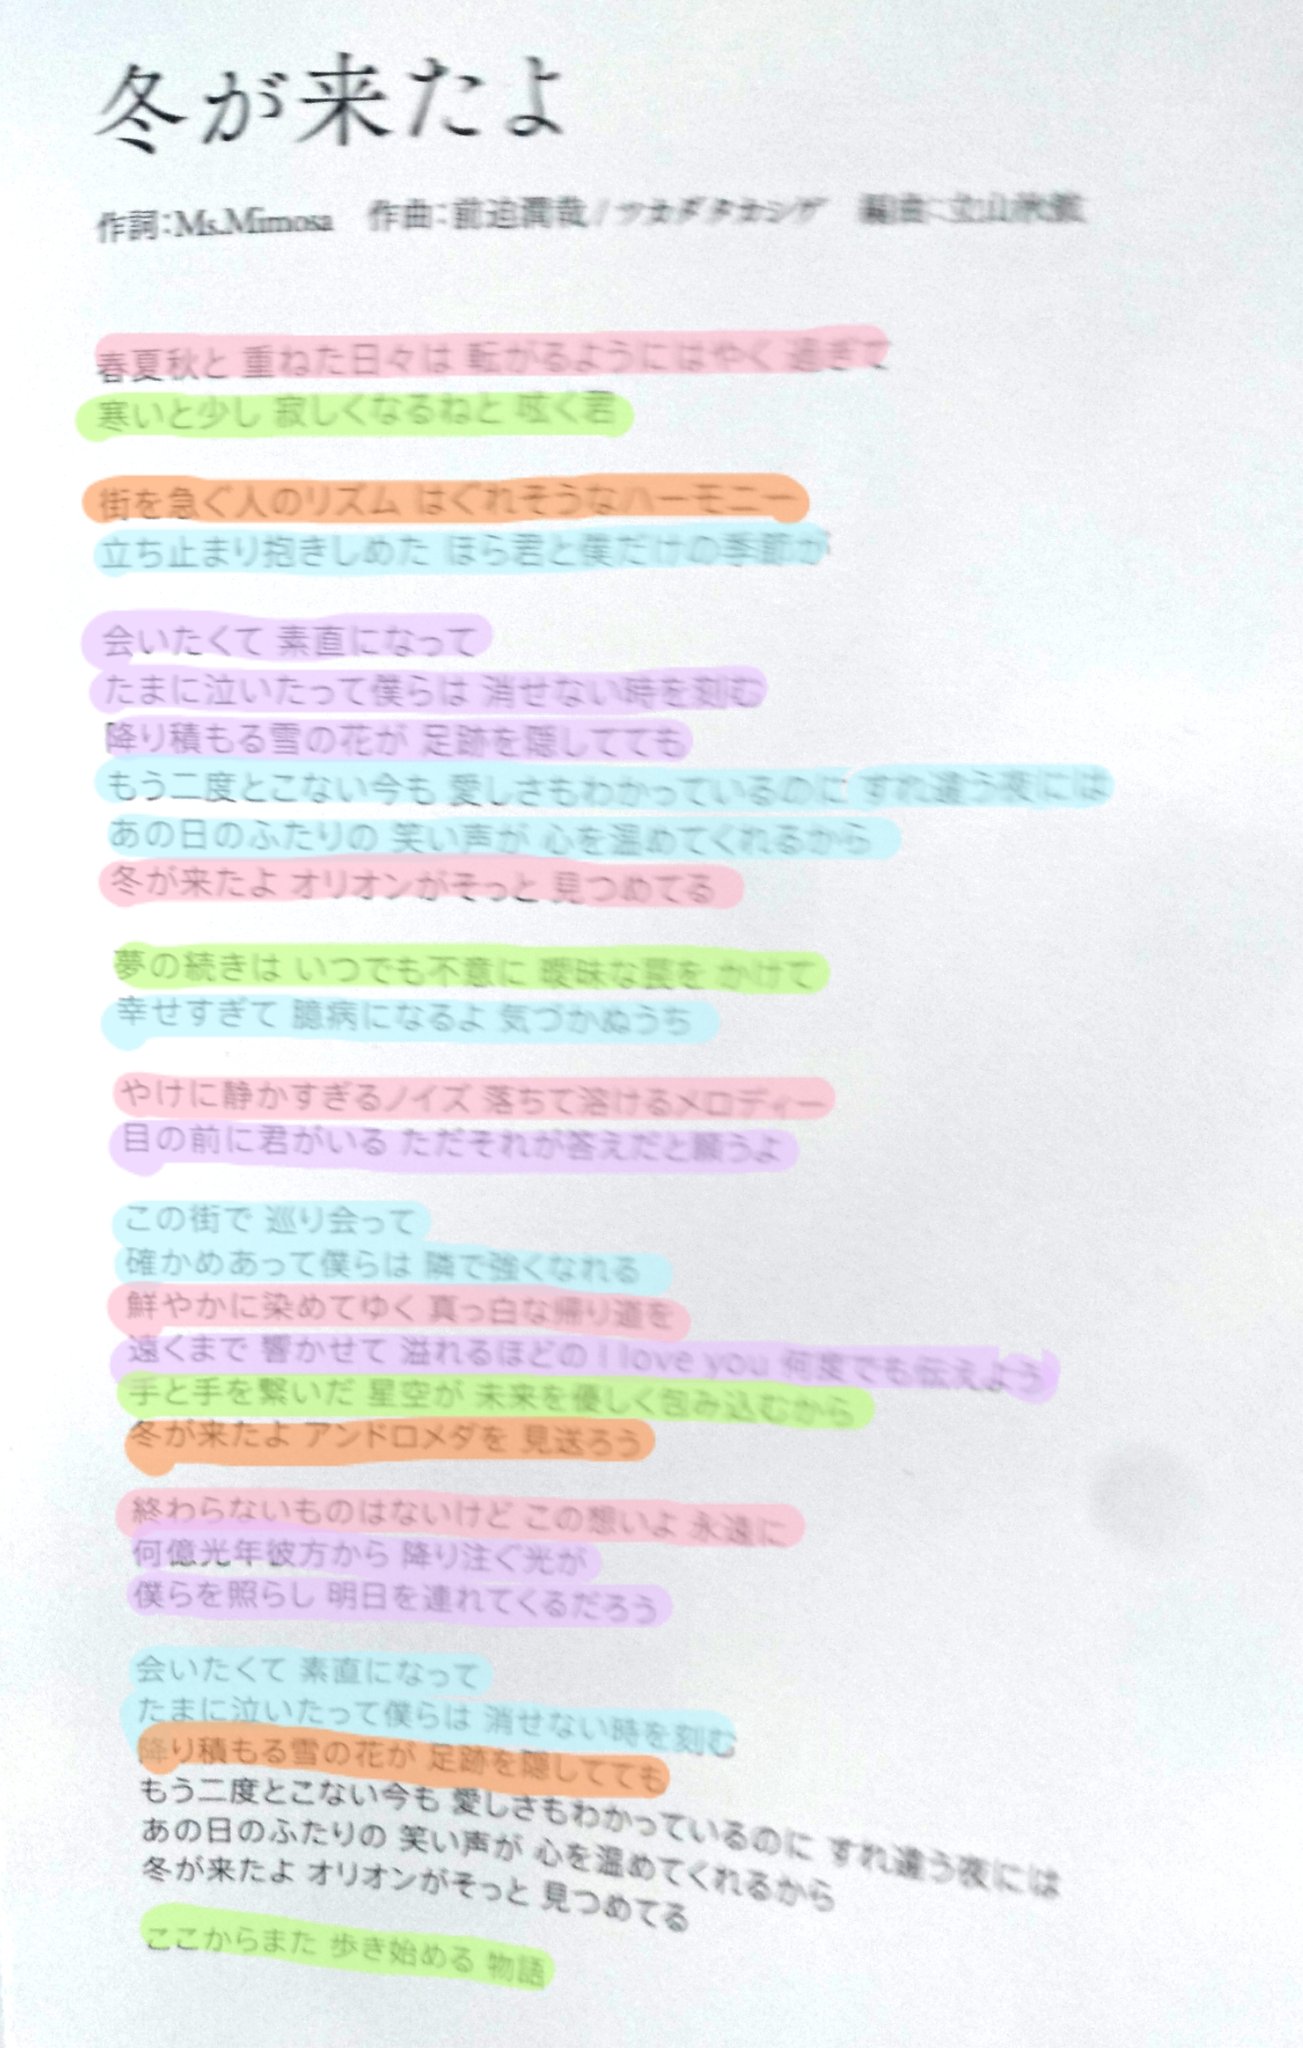 冬が来たよ
作詞：Ms.Mimosa 作曲：前迫潤哉 / ツカダタカシゲ 編曲：立山秋航
春夏秋と 重ねた日々は 転がるようにはやく 過ぎて
寒いと少し 寂しくなるねと 呟く君
街を急ぐ人のリズム はぐれそうなハーモニー
立ち止まり抱きしめた ほら君と僕だけの季節が
会いたくて 素直になって
たまに泣いたって僕らは 消せない時を刻む
降り積もる雪の花が 足跡を隠してても
もう二度とこない今も 愛しさもわかっているのに すれ違う夜には
あの日のふたりの 笑い声が 心を温めてくれるから
冬が来たよ オリオンがそっと 見つめてる
夢の続きは いつでも不意に 曖昧な罠を かけて
幸せすぎて 臆病になるよ 気づかぬうち
やけに静かすぎるノイズ 落ちて溶けるメロディー
目の前に君がいる ただそれが答えだと願うよ
この街で 巡り会って
確かめあって僕らは 隣で強くなれる
鮮やかに染めてゆく 真っ白な帰り道を
遠くまで 響かせて 溢れるほどの I love you 何度でも伝えよう
手と手を繋いだ 星空が 未来を優しく包み込むから
冬が来たよ アンドロメダを 見送ろう
終わらないものはないけど この想いよ 永遠に
何億光年彼方から 降り注ぐ光が
僕らを照らし 明日を連れてくるだろう
会いたくて 素直になって
たまに泣いたって僕らは 消せない時を刻む
降り積もる雪の花が 足跡を隠してても
もう二度とこない今も 愛しさもわかっているのに すれ違う夜には
あの日のふたりの 笑い声が 心を温めてくれるから
冬が来たよ オリオンがそっと 見つめてる
ここからまた 歩き始める 物語